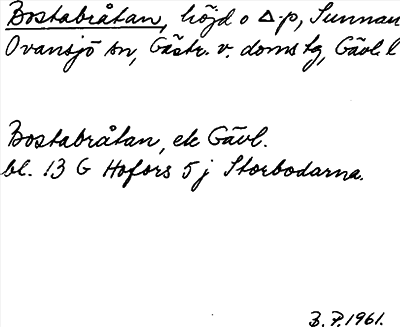 Bostabråtan, höjd o Δ.p, Sunnan
Ovansjö sn, Gästr. v. doms tg, Gävl. l
Bostabråtan, ek Gävl.
bl. 13 G Hofors 5 j Storbodarna.
B. P. 1961.